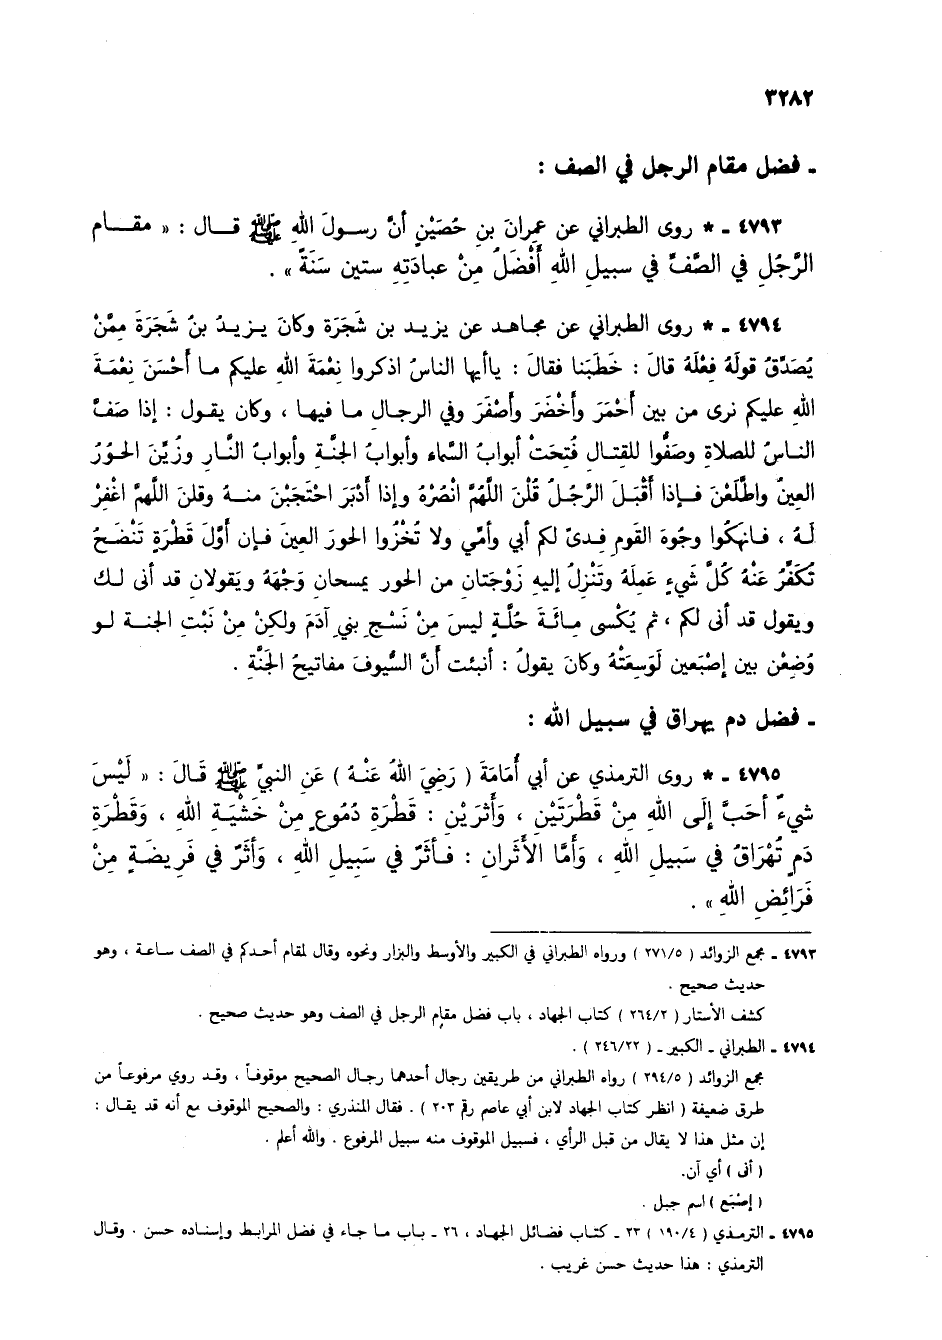 ٣٢٨٢
ـ فضل مقام الرجل في الصف :
٤٧٩٣ ـ * روى الطبراني عن عمرانَ بنِ حُصَيْنٍ أنَّ رسولَ اللهِ ﷺ قال : « مقام
الرَّجُلِ في الصَّفِّ في سبيلِ اللهِ أَفْضَلُ مِنْ عبادَتِهِ ستين سَنَةً » .
٤٧٩٤ ـ * روى الطبراني عن مجاهد عن يزيد بن شَجَرَة وكانَ يزيدُ بنُ شَجَرَةَ مِمَّنْ
يُصَدِّقُ قولَهُ فِعْلُهُ قالَ : خَطَبَنا فقالَ : ياأيها الناسُ اذكروا نِعْمَةَ اللهِ عليكم ما أَحْسَنَ نِعْمَةَ
اللهِ عليكم نرى من بين أَحْمَرَ وأَخْضَرَ وأَصْفَرَ وفي الرجال ما فيها ، وكان يقول : إذا صَفَّ
الناسُ للصلاةِ وصَفُّوا للقتال فُتِحَتْ أبوابُ السَّماء وأبوابُ الجنَّة وأبوابُ النَّار وزُيِّنَ الحُوْرُ
العينُ واطَّلَعْنَ فإذا أَقْبَلَ الرَّجُلُ قُلْنَ اللهُمَّ انْصُرْهُ وإذا أَدْبَرَ احْتَجَبْنَ منه وقلنَ اللهُمَّ اغْفِرْ
لَهُ ، فانهكُوا وجُوهَ القومِ فدىً لكم أبي وأمِّي ولا تُخْزُوا الحورَ العينَ فإن أَوَّلَ قَطْرَةٍ تَنْضَحُ
تُكَفِّرُ عَنْهُ كُلَّ شيءٍ عَمِلَهُ وتَنْزِلُ إليه زَوْجَتانِ من الحور يمسحانِ وَجْهَهُ ويَقولانِ قد أنى لك
ويقول قد أنى لكم ، ثم يُكْسى مِائَةَ حُلَّةٍ ليسَ مِنْ نَسْجِ بني آدَمَ ولكِنْ مِنْ نَبْتِ الجنة لو
وُضِعْن بين إِصْبَعين لَوَسِعَتْهُ وكانَ يقولُ : أنبئت أَنَّ السُّيوفَ مفاتيحُ الجَنَّةِ .
ـ فضل دم يهراق في سبيل الله :
٤٧٩٥ ـ * روى الترمذي عن أبي أُمَامَةَ ( رَضِيَ اللهُ عَنْهُ ) عَنِ النبيِّ ﷺ قَالَ : « لَيْسَ
شيءٌ أحَبَّ إِلَى اللهِ مِنْ قَطْرَتَيْنِ ، وَأَثَرَيْنِ : قَطْرَةِ دُمُوعٍ مِنْ خَشْيَةِ اللهِ ، وَقَطْرَةِ
دَمٍ تُهْرَاقُ في سَبِيلِ اللهِ ، وَأَمَّا الأَثَرانِ : فأثَرٌ في سَبِيلِ اللهِ ، وَأَثَرٌ في فَرِيضَةٍ مِنْ
فَرَائِضِ اللهِ » .
٤٧٩٣ ـ مجمع الزوائد ( ٢٧١/٥ ) ورواه الطبراني في الكبير والأوسط والبزار ونحوه وقال لمقام أحدكم في الصف ساعة ، وهو
حديث صحيح .
كشف الأستار ( ٢٦٤/٢ ) كتاب الجهاد ، باب فضل مقام الرجل في الصف وهو حديث صحيح .
٤٧٩٤ ـ الطبراني ـ الكبير ـ ( ٢٤٦/٢٢ ) .
مجمع الزوائد ( ٢٩٤/٥ ) رواه الطبراني من طريقين رجال أحدهما رجال الصحيح موقوفاً ، وقد روي مرفوعاً من
طرق ضعيفة ( انظر كتاب الجهاد لابن أبي عاصم رقم ٢٠٣ ) . فقال المنذري : والصحيح الموقوف مع أنه قد يقال :
إن مثل هذا لا يقال من قبل الرأي ، فسبيل الموقوف منه سبيل المرفوع . والله أعلم .
( أنى ) أي آن.
( إِصْبَع ) اسم جبل .
٤٧٩٥ ـ الترمذي ( ١٩٠/٤ ) ٢٣ ـ كتاب فضائل الجهاد ، ٢٦ ـ باب ما جاء في فضل المرابط وإسناده حسن . وقال
الترمذي : هذا حديث حسن غريب .